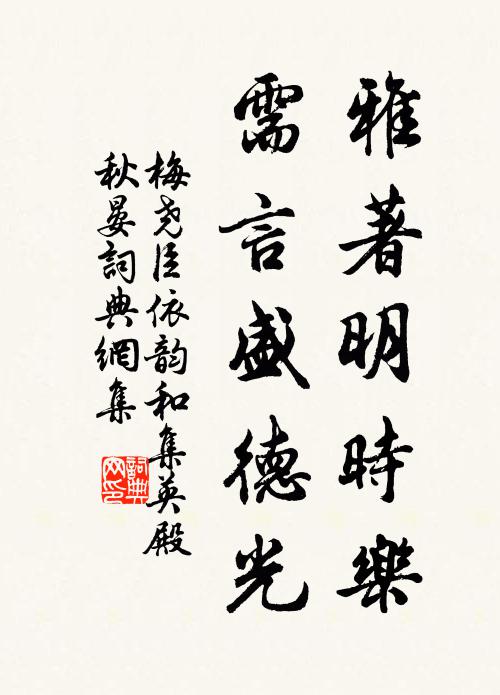 雅著明時樂
需言盛德光
梅尧臣依韵和集英殿
秋晏詞典網集
詞典网印